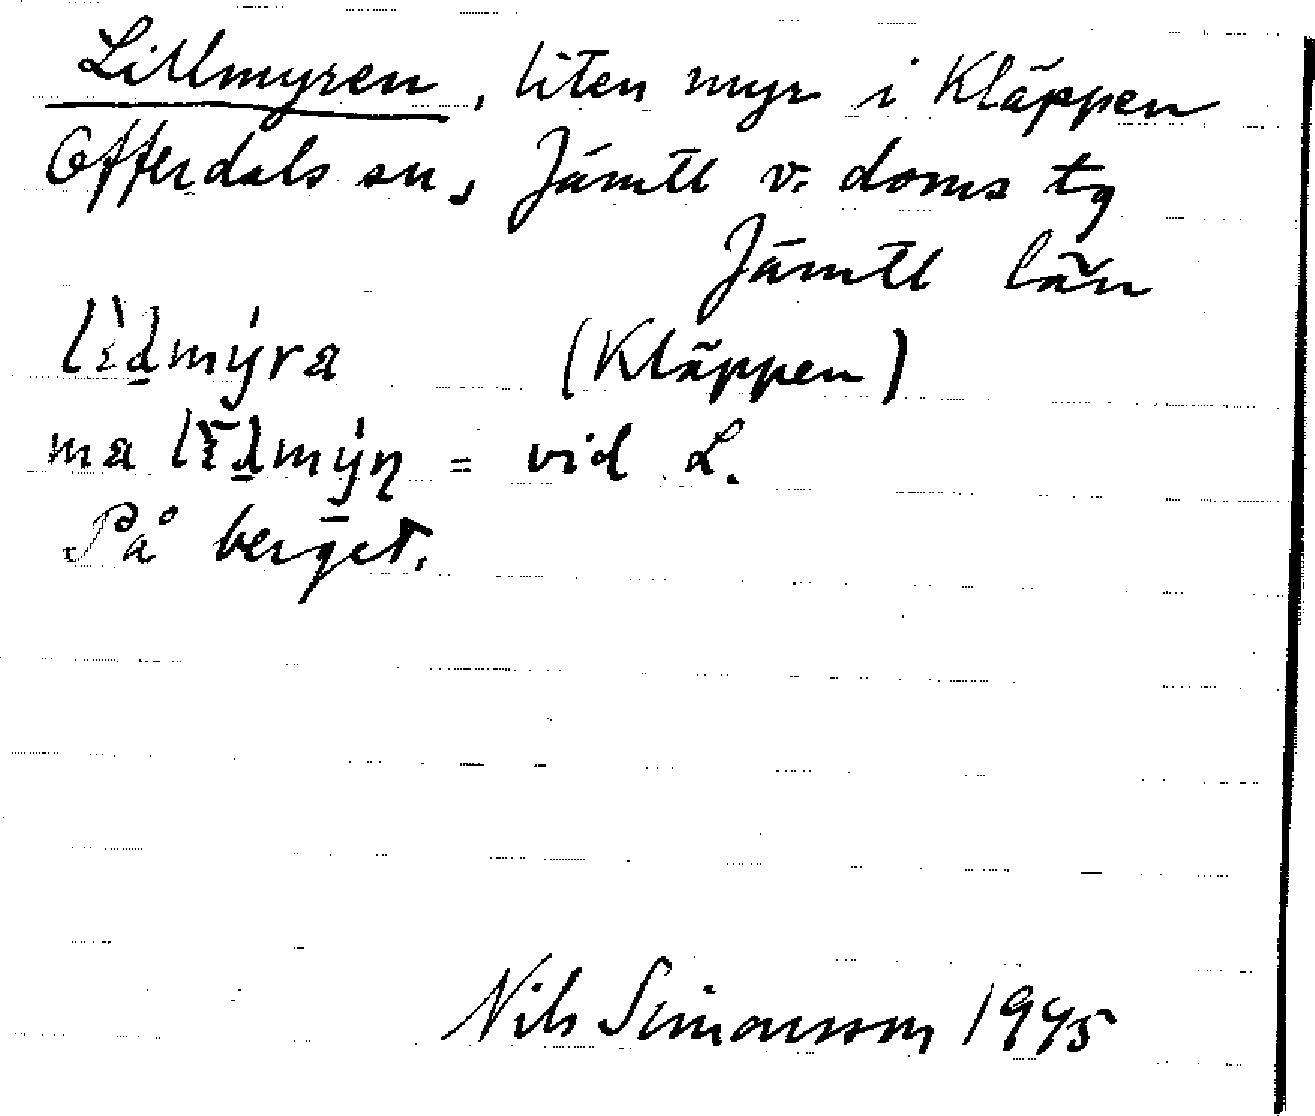 Lillmyren, liten myr i Kläppen
Offerdals sn, Jämtl v. doms tg
Jämtl län
lìḍmýra (Kläppen)
ma lìḍmýṇ = vid L.
På berget.
Nils Simonsson 1945